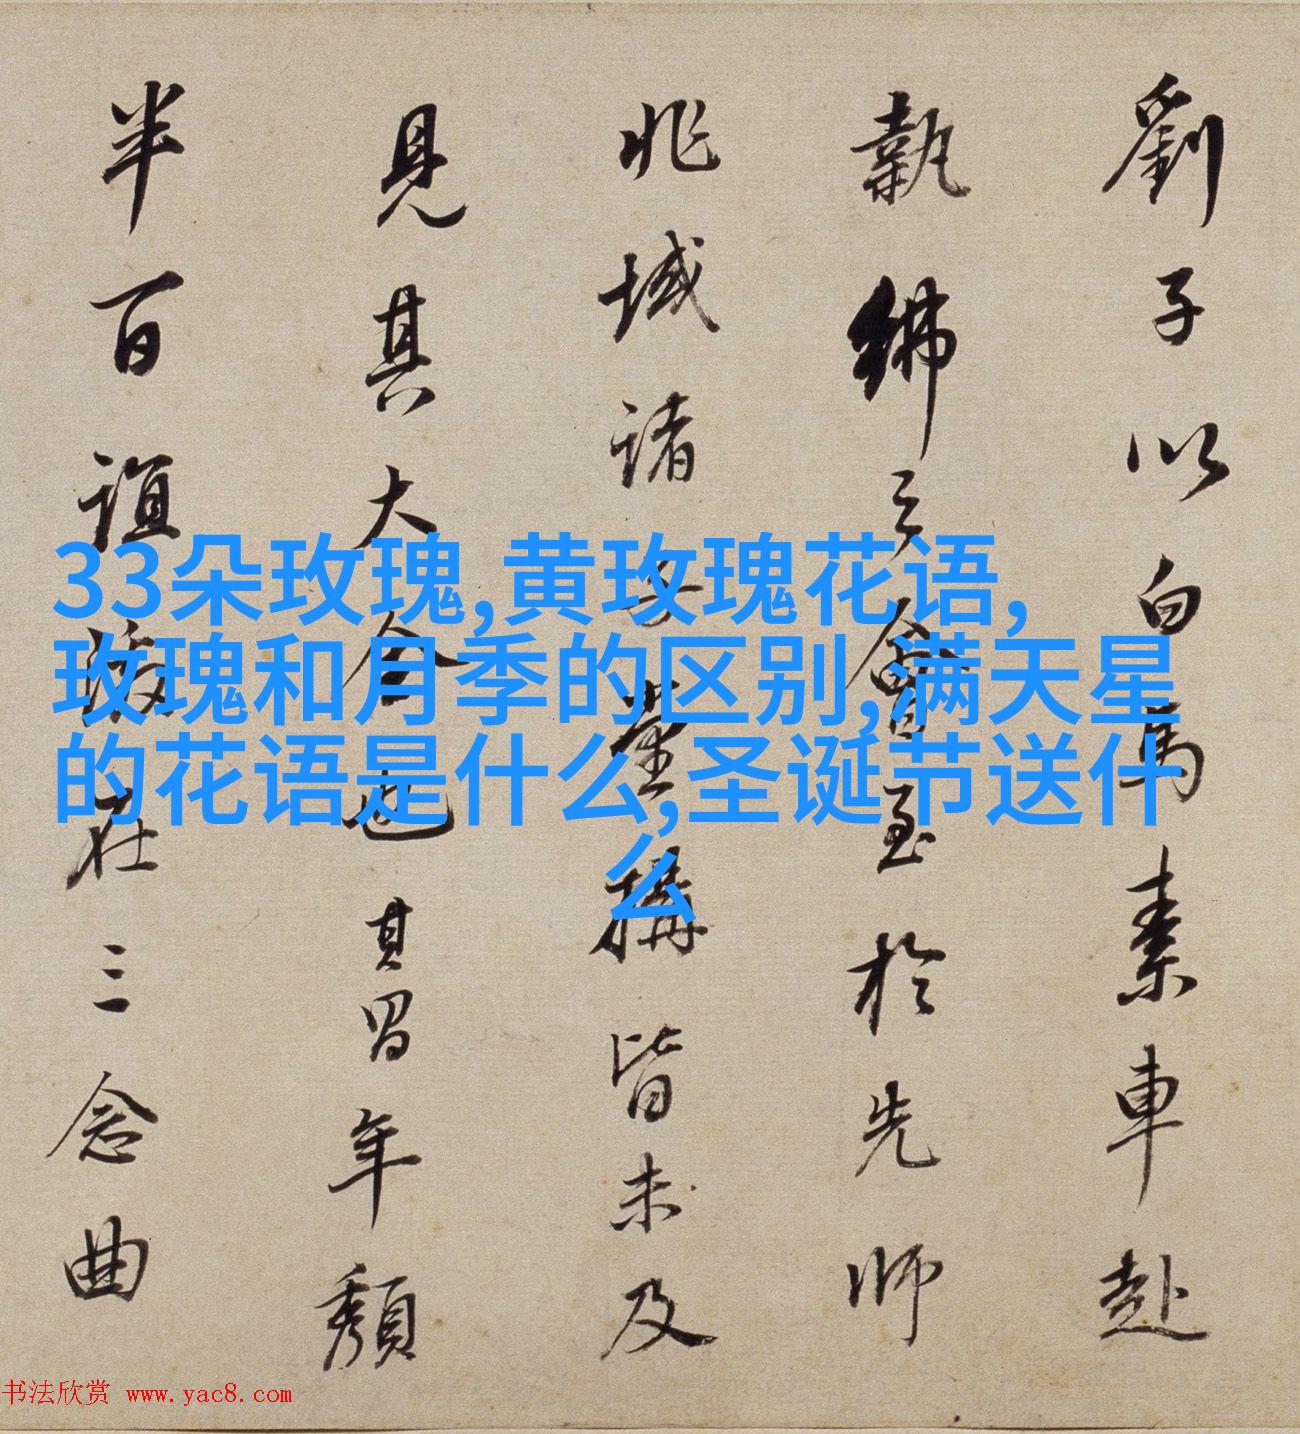 劉子以白馬素車赴
執紼之會至於先師
兆域諸子堂搆皆未及
見其大全也其冒年頹
半百誼激在三念曲
33朵玫瑰,黄玫瑰花语,
玫瑰和月季的区别,满天星
的花语是什么,圣诞节送什
么
书法欣赏 www.yac8.com